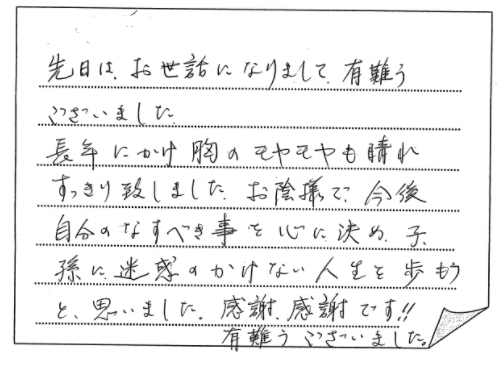 先日は、お世話になりまして、有難う
ございました。
長年にかけ胸のモヤモヤも晴れ
すっきり致しました。お陰様で、今後
自分のなすべき事を心に決め、子、
孫に迷惑のかけない人生を歩もう
と、思いました。感謝、感謝です!!
有難うございました。